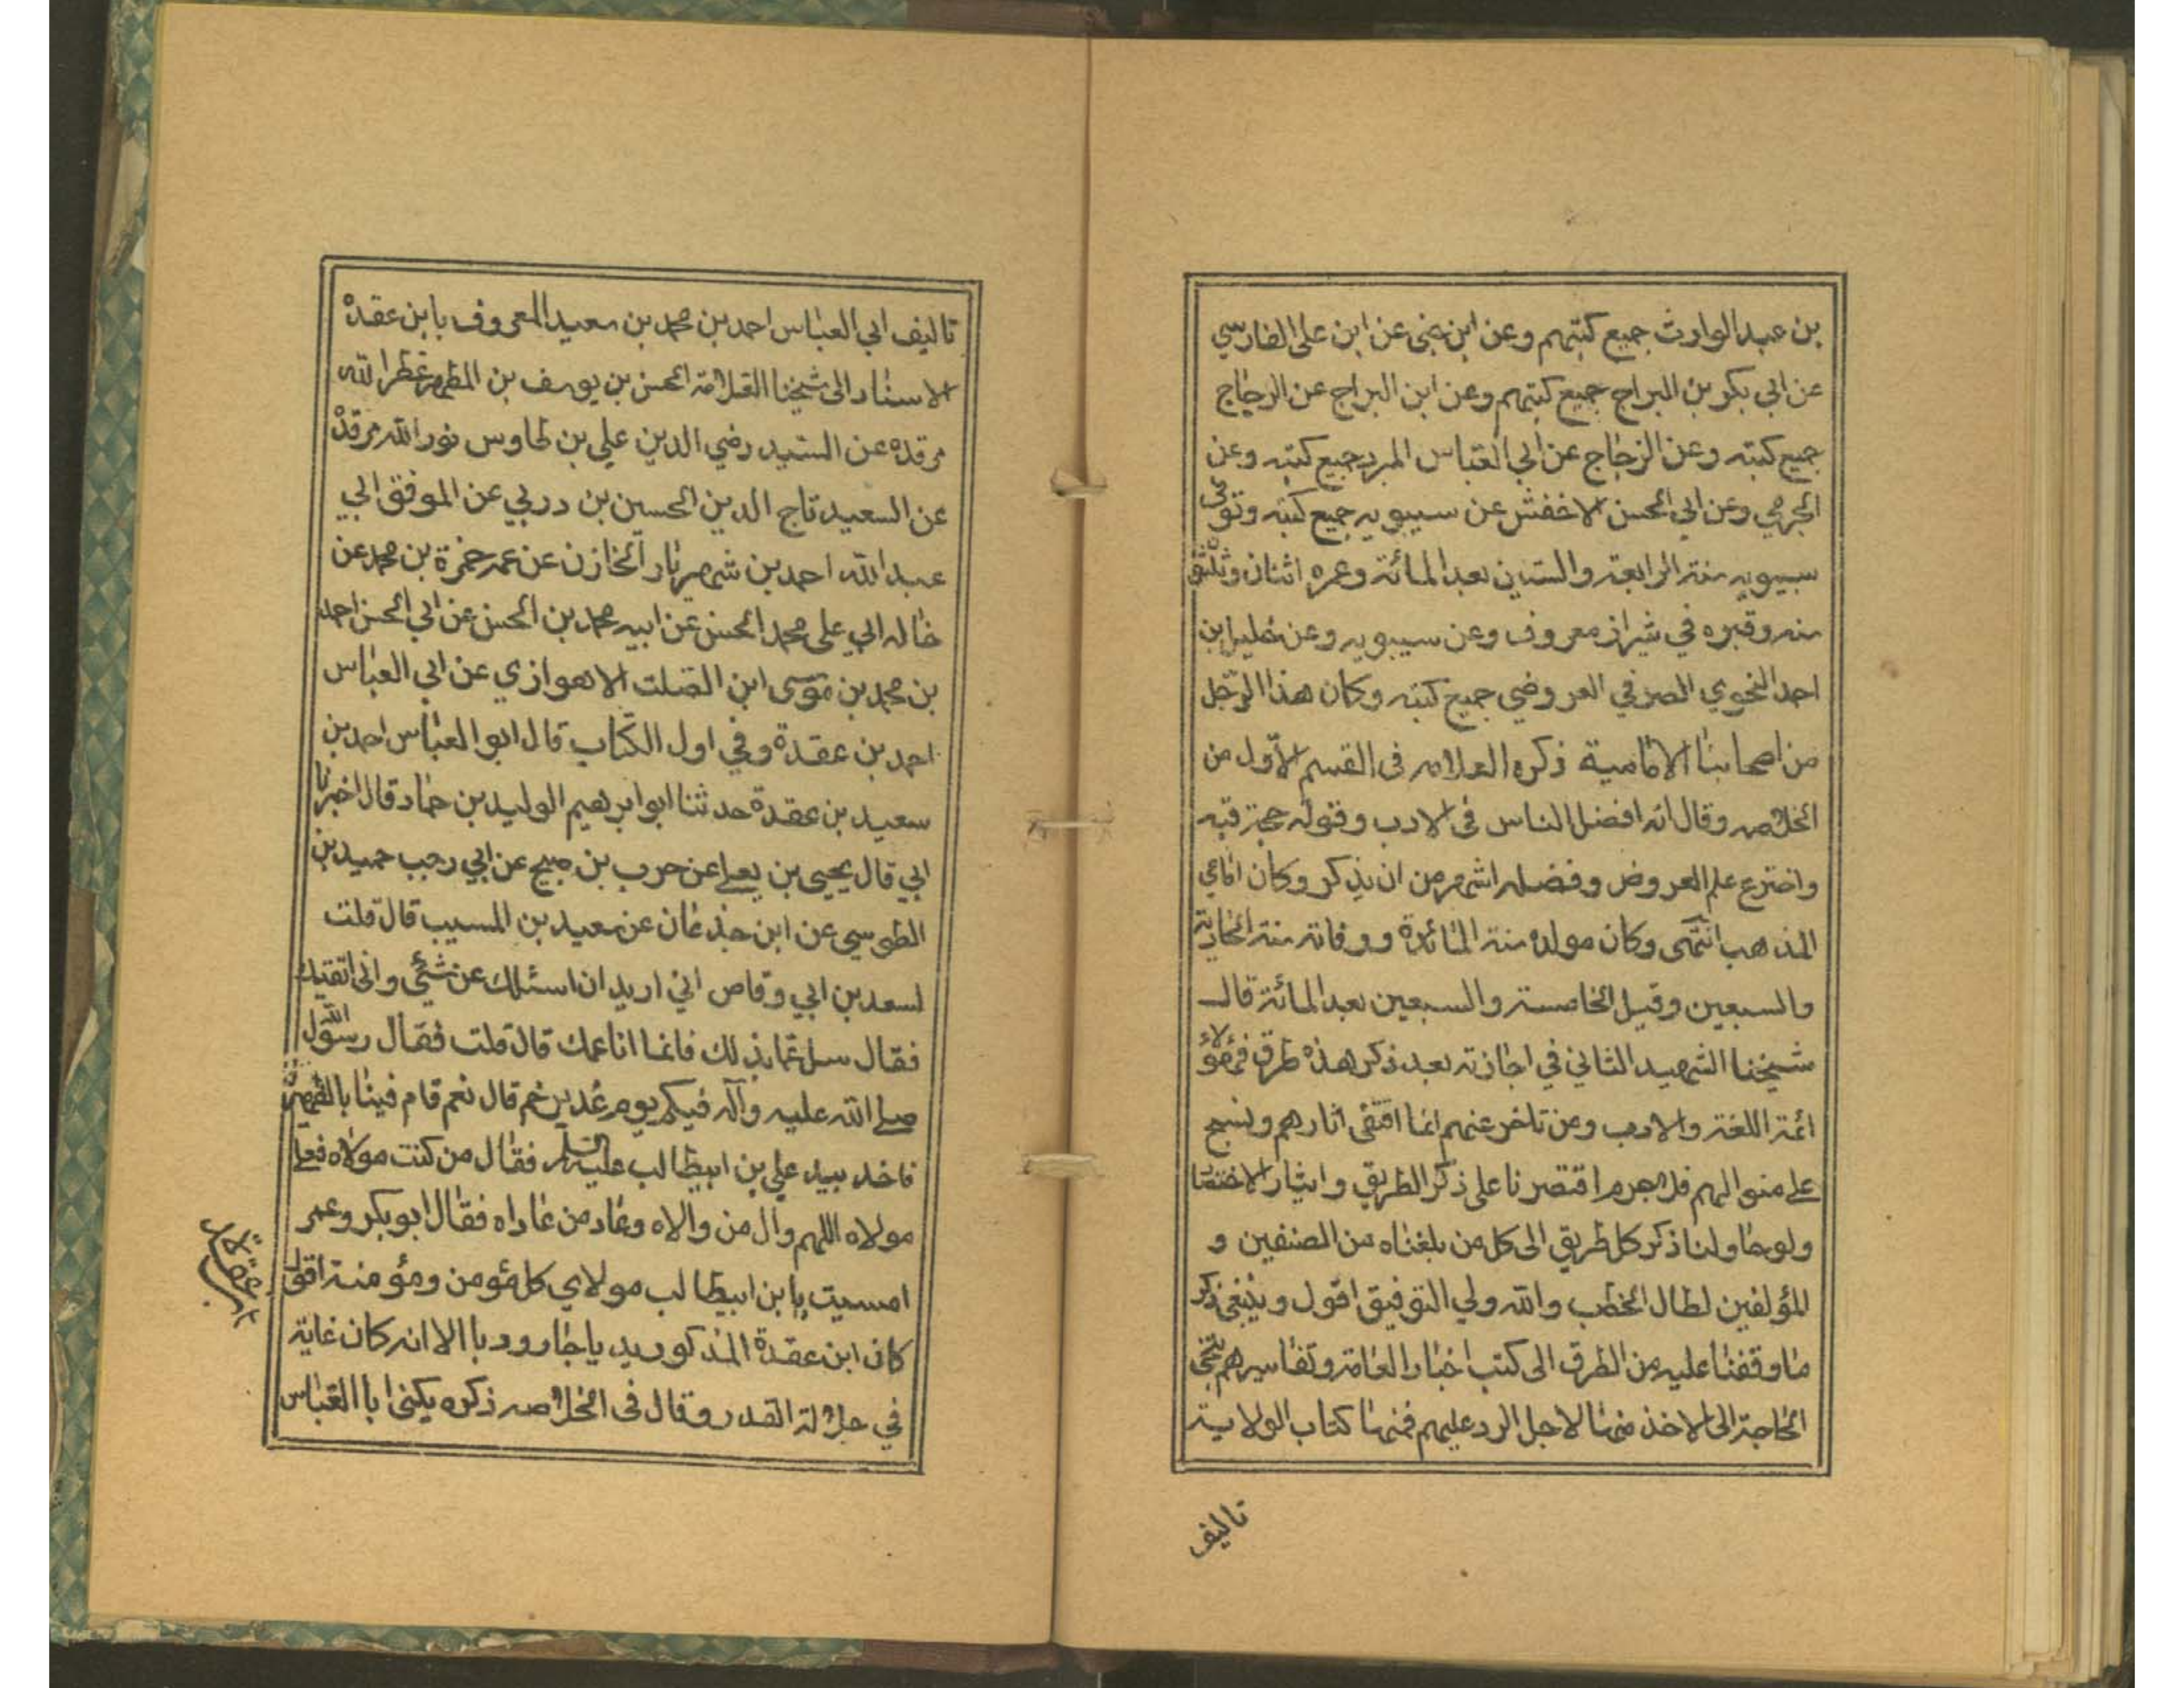 بن عبد الوارث جميع كتبهم وعن ابن جنى عن ابن على الفارسي
عن ابي بكر بن البراج جميع كتبهم وعن ابن البراج عن الزجاج
جميع كتبه وعن الزجاج عن ابي العباس المبرد جميع كتبه وعن
الجرمي وعن ابي الحسن الاخفش عن سيبويه جميع كتبه وتوفى
سيبويه سنة الرابعة والستين بعد المائة وعمره اثنان وثلثين
سنه وقبره في شيراز معروف وعن سيبويه وعن خليل بن
احمد النحوي المصرفي العروضي جميع كتبه وكان هذا الرّجل
من اصحابنا الامامية ذكره العلامه فى القسم الاوّل من
الخلاصه وقال انه افضل الناس فى الادب وقوله حجة فيه
واخترع علم العروض وفضله اشهر من ان يذكر وكان امامي
المذهب انتهى وكان مولده سنة المائة ووفاته سنة الحادية
والسبعين وقيل الخامسة والسبعين بعد المائة قال
شيخنا الشهيد الثاني في اجازته بعد ذكر هذه طرق فهؤلاء
ائمة اللغة والادب ومن تاخر عنهم انما اقتفى اثارهم ونسج
على منوالهم فلا جرم اقتصرنا على ذكر الطريق وايثار الاختصا
ولو حاولنا ذكر كل طريق الى كل من بلغناه من المصنفين و
المؤلفين لطال الخطب والله ولي التوفيق اقول وينبغى ذكر
ما وقفنا عليه من الطرق الى كتب اخبار العامة وتفاسيرهم
الحاجة الى الاخذ منها لاجل الرد عليهم فمنها كتاب الولاية
تاليف
تاليف ابي العباس احمد بن محمد بن سعيد المعروف بابن عقدة
الاسناد الى شيخنا العلامة الحسن بن يوسف بن المطهر عطر الله
مرقده عن السّيد رضي الدين علي بن طاوس نور الله مرقده
عن السعيد تاج الدين الحسين بن دربي عن الموفق ابي
عبد الله احمد بن شهريار الخازن عن عمه حمزة بن محمد عن
خاله ابي على محمد الحسن عن ابيه محمد بن الحسن عن ابي الحسن احمد
بن محمد بن موسى ابن الصلت الاهوازي عن ابي العباس
احمد بن عقدة وفي اول الكتاب قال ابو العباس احمد بن
سعيد بن عقدة حدثنا ابو ابرهيم الوليد بن حماد قال اخبرنا
ابي قال يحيى بن يعلى عن حرب بن صبيح عن ابي رجب حميد بن
الطوسي عن ابن جذعان عن سعيد بن المسيب قال قلت
لسعد بن ابي وقاص اني اريد ان اسئلك عن شيئ وانى اتقيك
فقال سل عما بذلك فانما انا عمك قال قلت فقال رسول الله
صلى الله عليه وآله فيكم يوم غدير خم قال نعم قام فينا بالظهيرة
فاخذ بيد علي بن ابيطالب عليه السلم فقال من كنت مولاه فعلى
مولاه اللهم وال من والاه وعاد من عاداه فقال ابو بكر وعمر
امسيت يا بن ابيطالب مولاي كل مؤمن ومؤمنة اقول
كان ابن عقدة المذكور يد يا جاروديا الا انه كان غاية
في جلالة القدر وقال فى الخلاصه ذكره يكنى ابا العباس
ابن عقدة